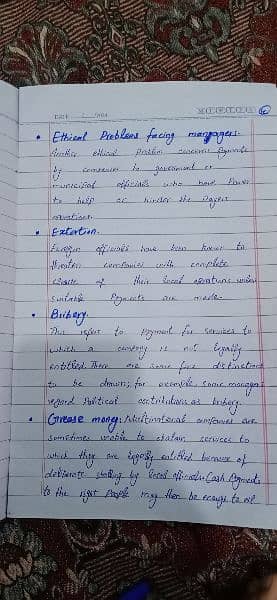 DATE
• Ethical Problems facing mangagers.
Another ethical Problem concerns Payments
by companies to government or
municipal officials who have Power
to help or hinder the Payers
operations.
• Extortion.
Foreign officials have been known to
threaten companies with complete
closure of their local operations unless
suitable Payments are made.
• Bribery.
This refers to Payment for services to
which a company is not legally
entitled. There are some fine distinctions
to be drawn; for example, some managers
regard Political contributions as bribery.
• Grease money: Multinational companies are
sometimes unable to obtain services to
which they are legally entitled because of
deliberate stalling by local officials. Cash Payments
to the right People may then be enough to oil